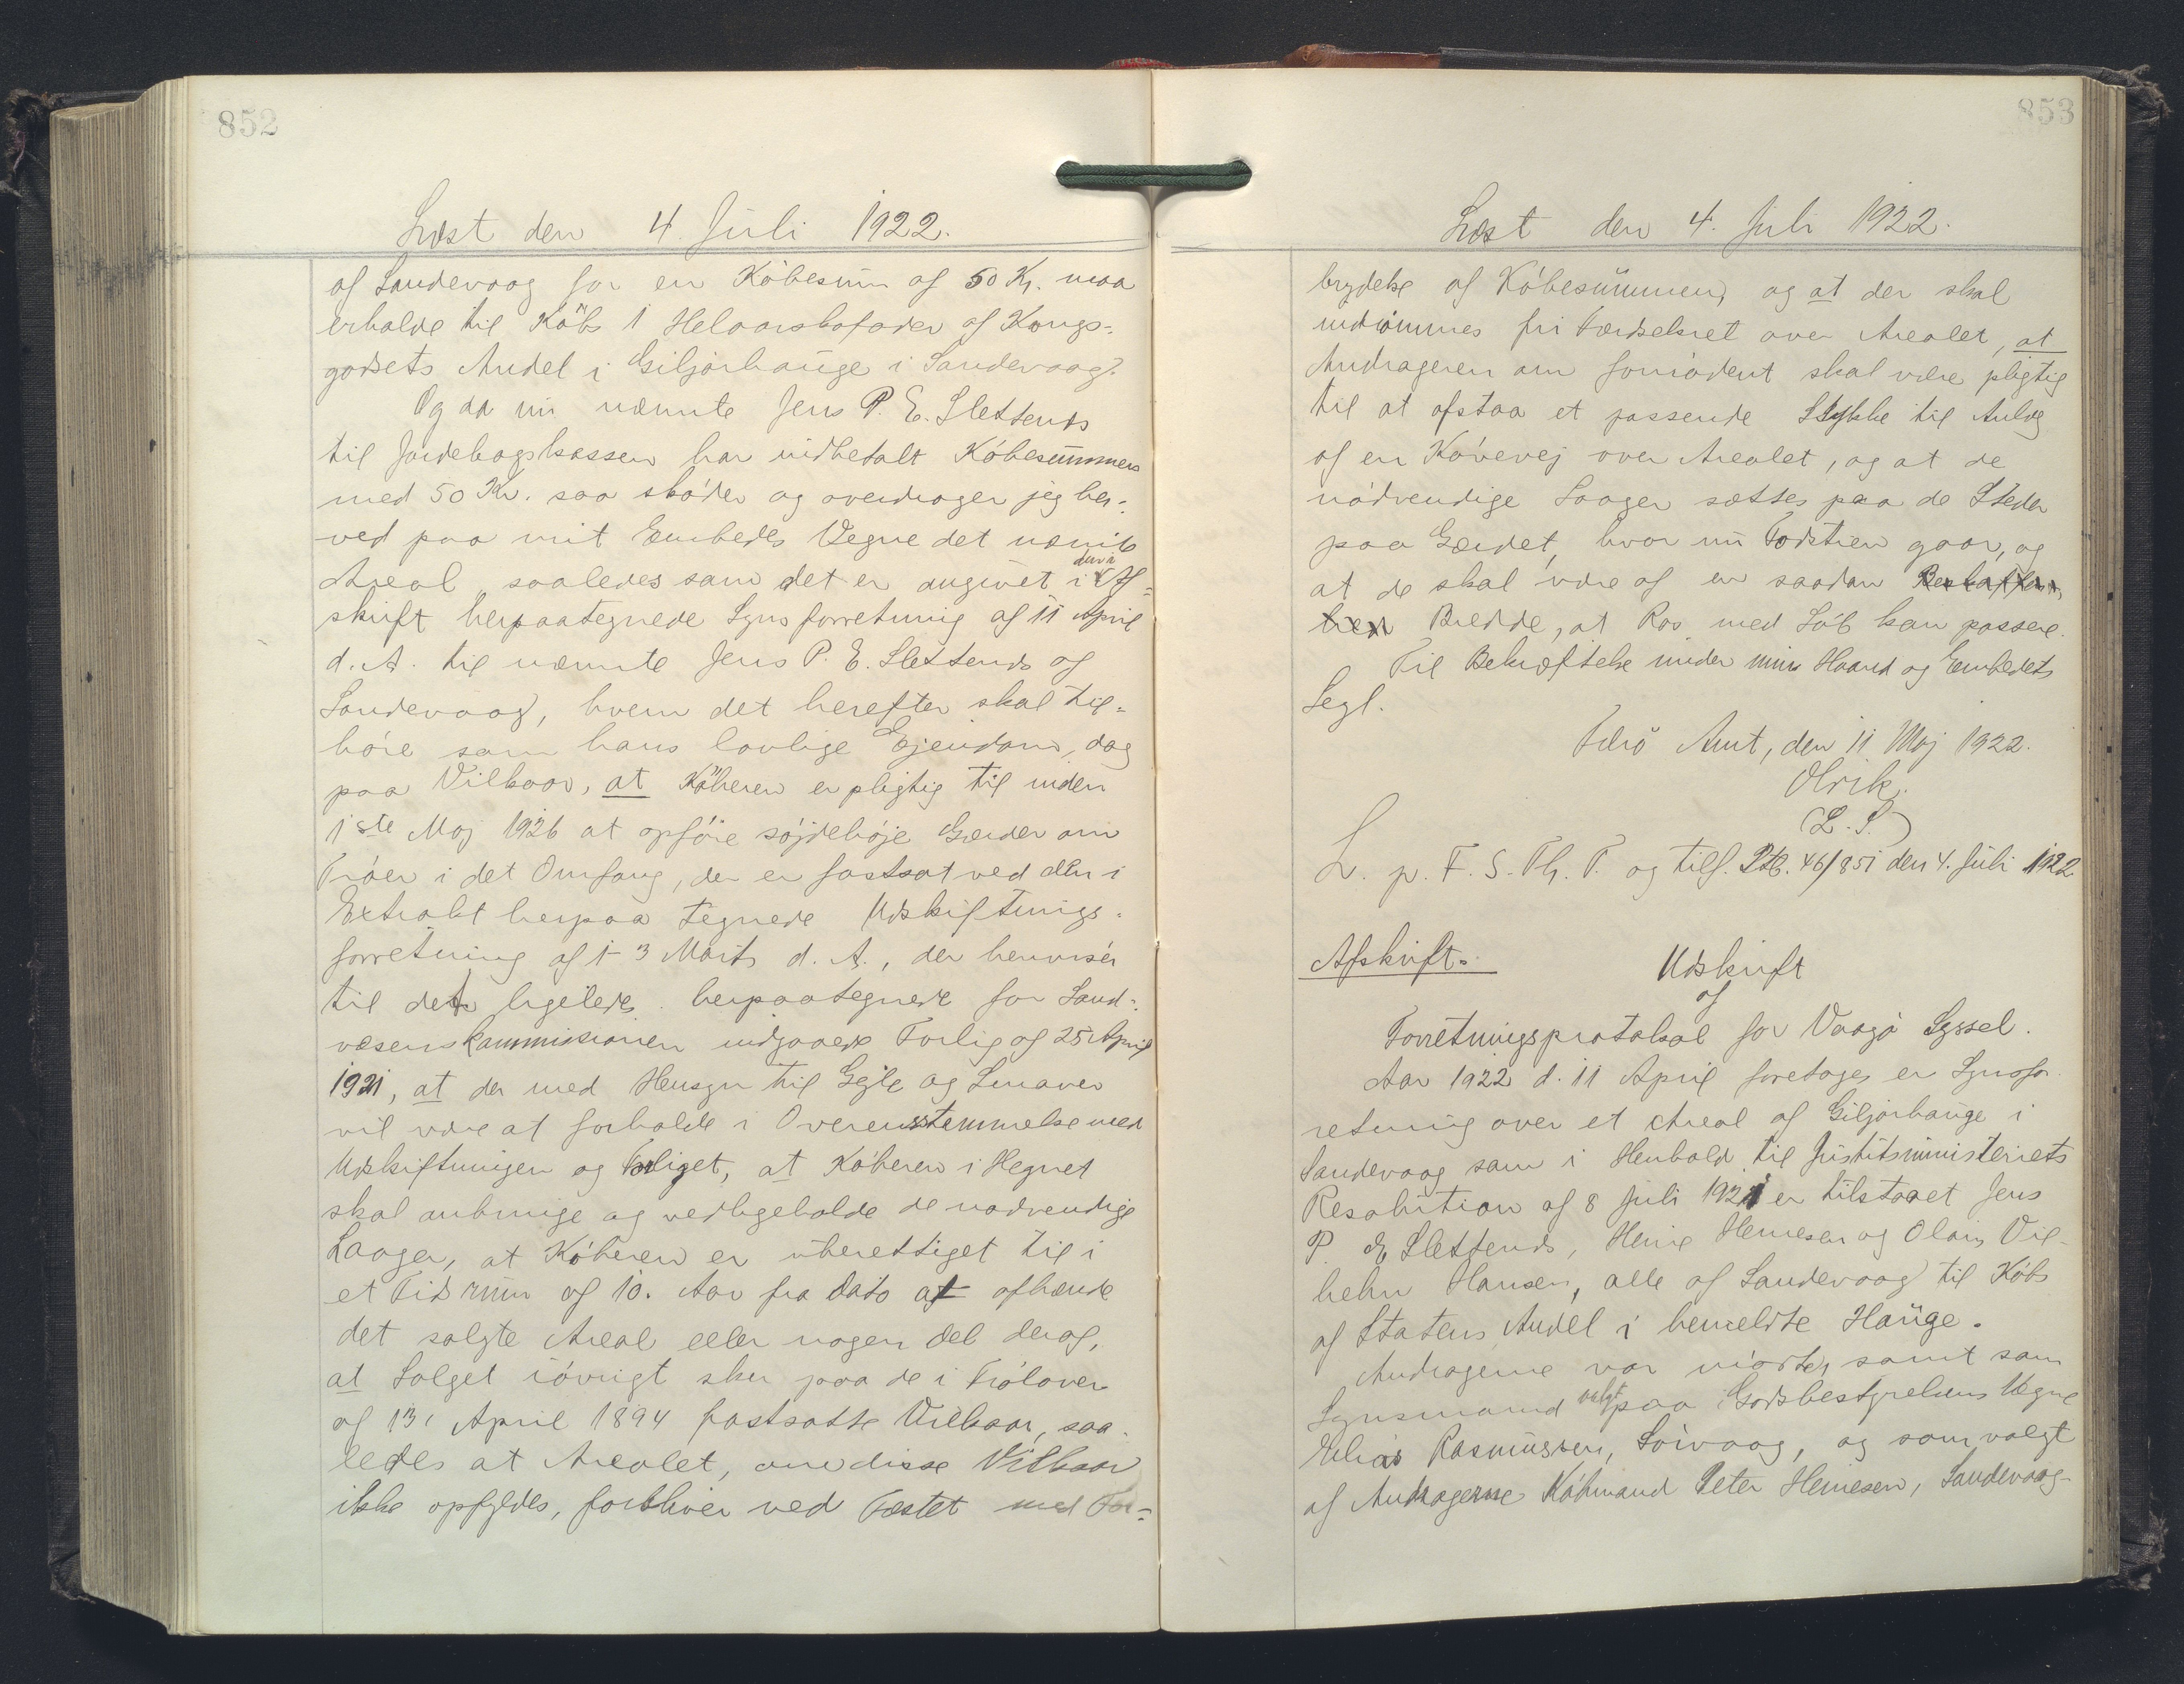 852
Læst den 4 Juli 1922.
af Sandevaag for en Köbesum af 50 Kr. maa
erholde til Köb 1 Helaarskofoder af Kongs-
godsets Andel i Giljarhauge i Sandevaag.
Og da nu nævnte Jens P. E. Slettends
til Jordebogskassen har indbetalt Köbesummen
med 50 Kr. saa sköder og overdrager jeg her-
ved paa mit Embedes Vegne det nævnte
Areal, saaledes som det er angivet i den i Af-
skrift herpaategnede Synsforretning af 11 April
d. A. til nævnte Jens P. E. Slettends af
Sandevaag, hvem det herefter skal til-
höre som hans lovlige Ejendom, dog
paa Vilkaar, at Köberen er pligtig til inden
1ste Maj 1926 at opföre söjdehöje Gærder om
Tröer i det Omfang, der er fastsat ved den i
Extrakt herpaa tegnede Udskiftnings-
forretning af 1-3 Marts d. A., der henviser
til det ligeledes herpaategnede for Land-
væsenskommissionen indgaaede Forlig af 25 April
1921, at der med Hensyn til Gejle og Smaaver
vil være at forholde i Overensstemmelse med
Udskiftningen og Forliget, at Köberen i Hegnet
skal anbringe og vedligeholde de nødvendige
Laager, at Köberen er uberettiget til i
et Tidsrum af 10. Aar fra Dato at afhænde
det solgte Areal eller nogen Del deraf,
at Salget iövrigt sker paa de i Tröloven
af 13. April 1894 fastsatte Vilkaar, saa-
ledes at Arealet, om disse Vilkaar
ikke opfyldes, forbliver ved Fæstet med For-
853
Læst den 4. Juli 1922.
brydelse af Köbesummen, og at der skal
indrömmes fri Færdselsret over Arealet, at
Andrageren om fornödent skal være pligtig
til at afstaa et passende Stykke til Anlæg
af en Körevej over Arealet, og at de
nödvendige Laager sættes paa de Steder
paa Gærdet, hvor nu Fodstien gaar, og
at de skal være af en saadan Beskaffen-
hed Bredde, at Ros med Löb kan passere.
Til Bekræftelse under min Haand og Embedets
Segl.
Færö Amt, den 11 Maj 1922.
Olrik.
(L. S.)
L. p. F. S. Th. T. og tilf. Ptb. 46/851 den 4. Juli 1922
Afskrift.
Udskrift
af
Forretningsprotokol for Vaagö Syssel.
Aar 1922 d. 11 April foretoges en Synsfor
retning over et Areal af Giljarhauge i
Sandevaag som i Henhold til Justitsministeriets
Resolution af 8 Juli 1921 er tilstaaet Jens
P. E. Slettends, Heine Heinesen og Olaus Vil-
helm Hansen, alle af Sandevaag til Köbs
af Statens Andel i bemeldte Hauge.
Andragerne var mödte, samt som
Synsmænd valgt paa Godsbestyrelsens Vegne
Elias Rasmussen, Sörvaag, og som valgt
af Andragerne Köbmand Peter Heinesen, Sandevaag